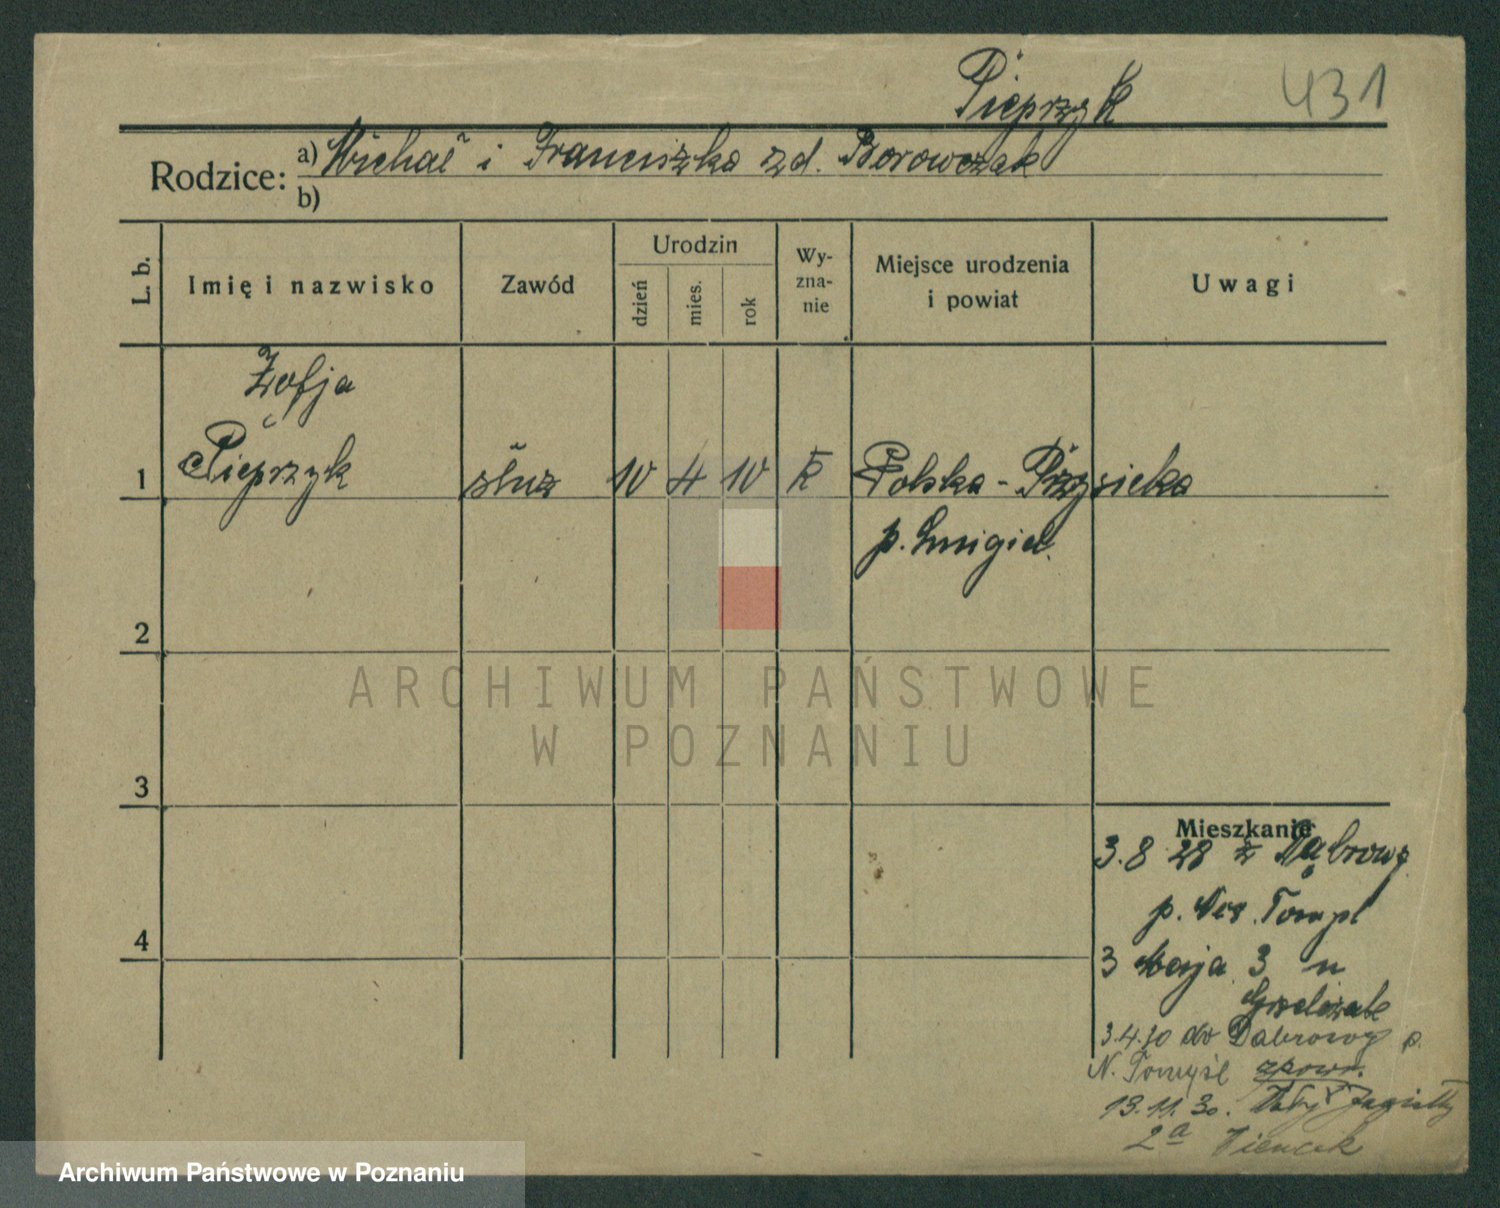 Pieprzyk 431
Rodzice: a) Michał i Franciszka zd. Borowczak
b)
L. b.
Imię i nazwisko
Zawód
Urodzin
dzień
mies.
rok
Wy-
zna-
nie
Miejsce urodzenia
i powiat
Uwagi
Zofja
1 Pieprzyk służ 10 4 10 k Polska - Przysieka
p. Śmigiel.
2
ARCHIWUM PAŃSTWOWE
W POZNANIU
3
Mieszkanie
3.8 28 z Dąbrowy
p. Now. Tomyśl
4
3 Maja 3 u
3.4.30 do Dąbrowy p.
N. Tomyśl zpowr.
13.11.30.
2a
Archiwum Państwowe w Poznaniu